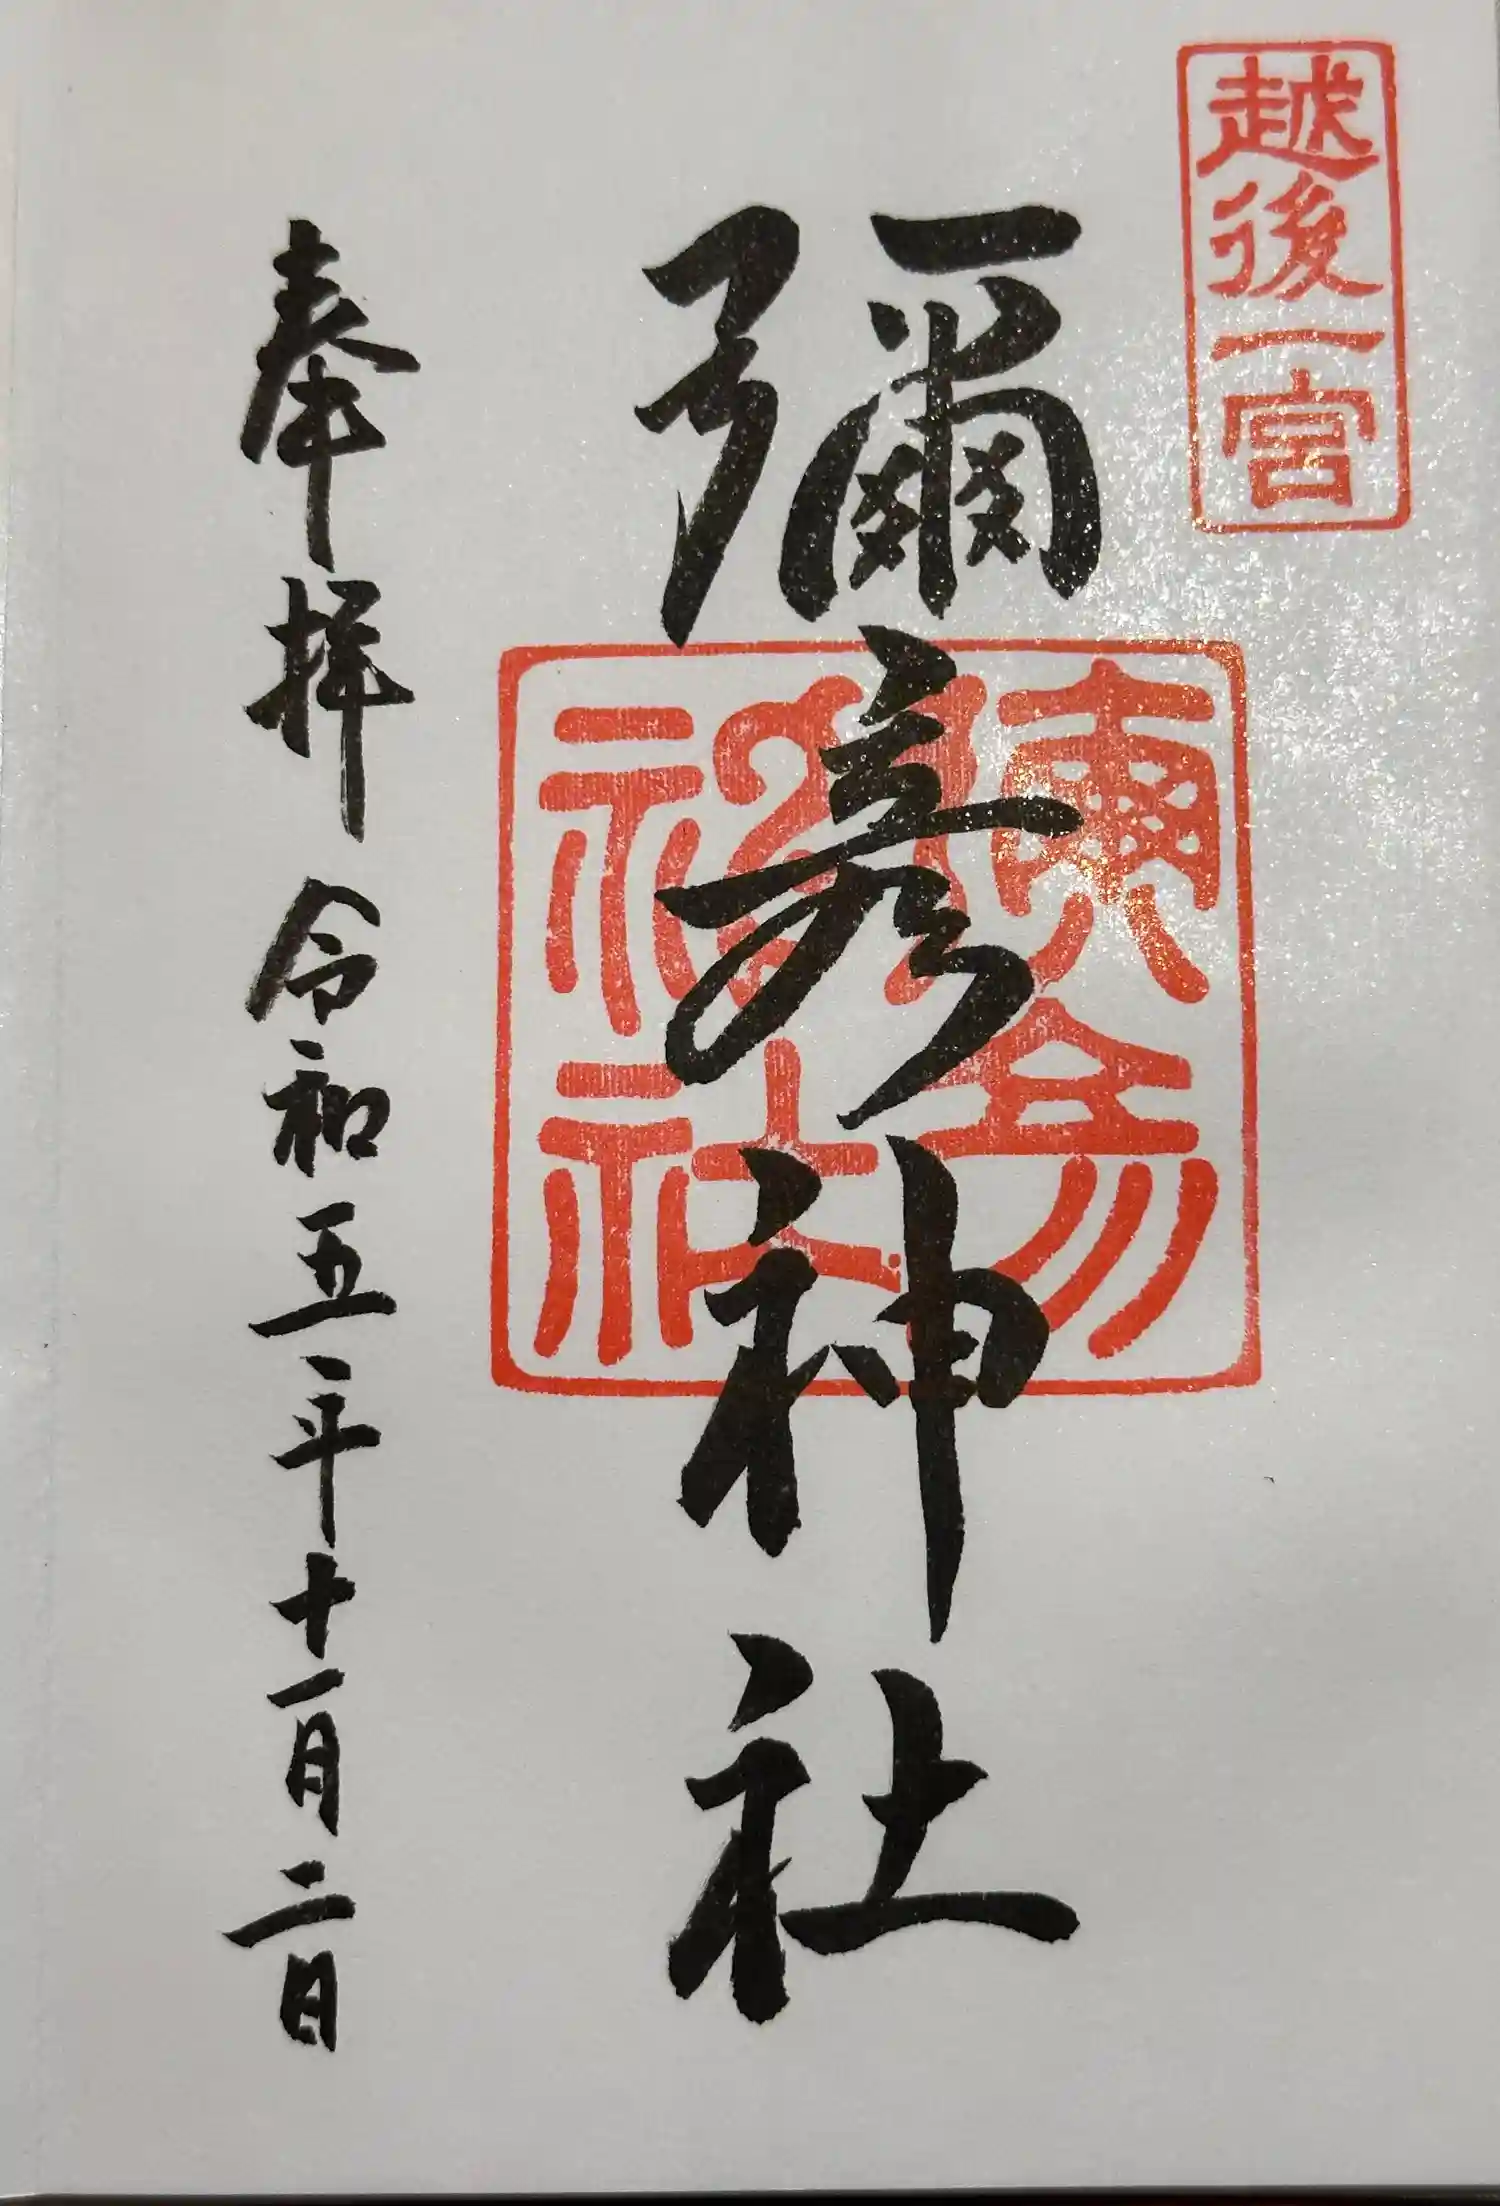 越後一宮
彌彦神社
彌彦
神社
奉拝 令和五年十一月二日